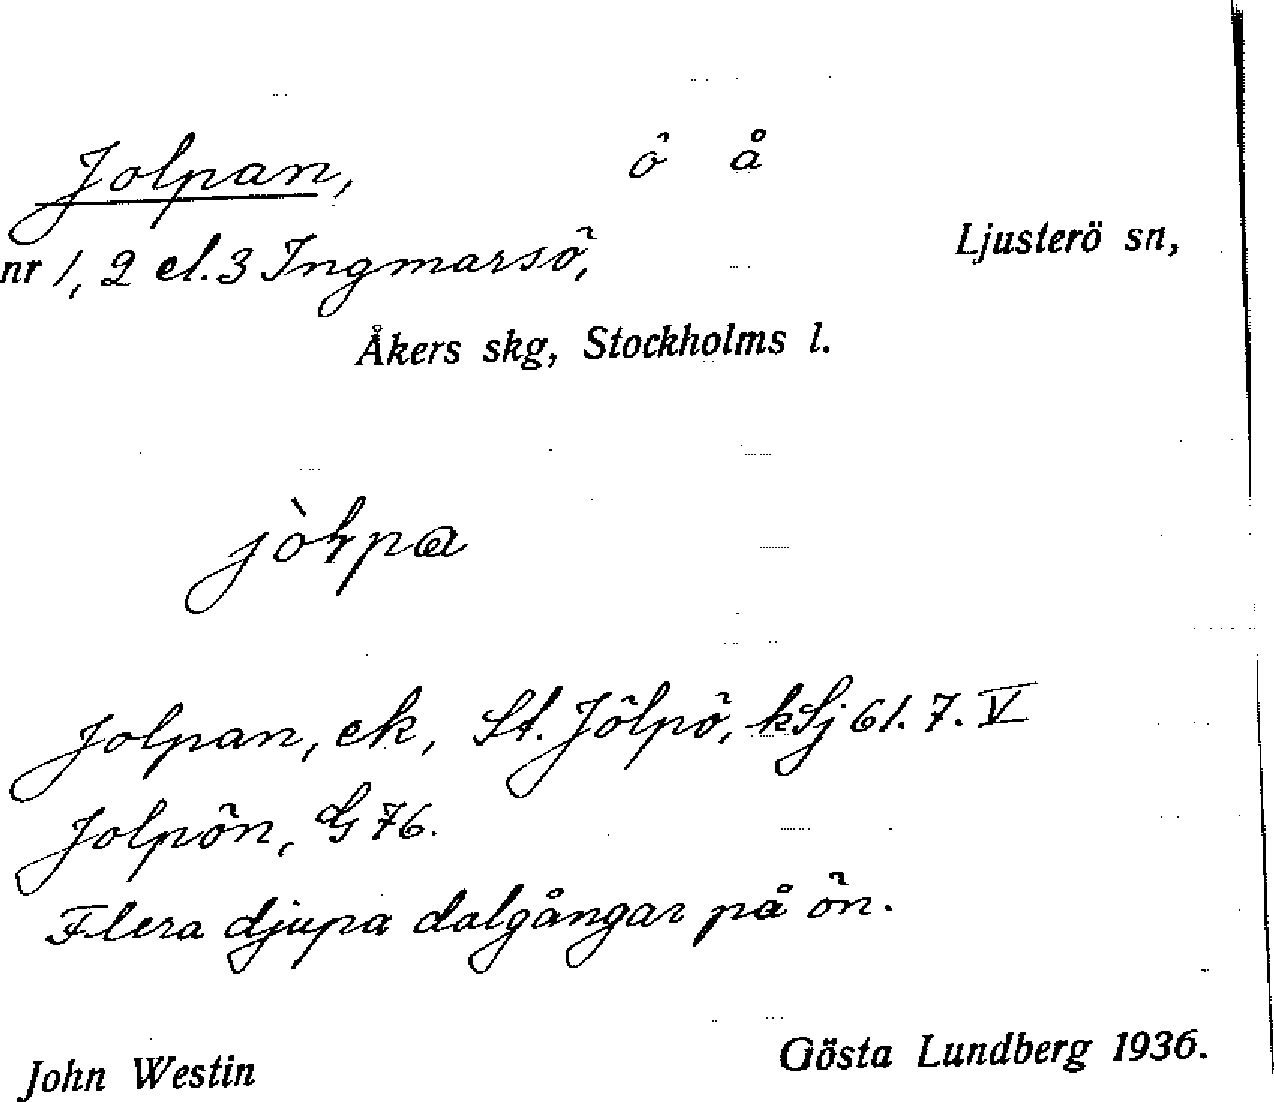 Jolpan, ö å
nr 1, 2 el. 3 Ingmarsö, Ljusterö sn,
Åkers skg, Stockholms l.
jòłpa
Jolpan, ek, St. Jölpö, kSj 61. 7. V
Jolpön, G 76.
Flera djupa dalgångar på ön.
John Westin Gösta Lundberg 1936.